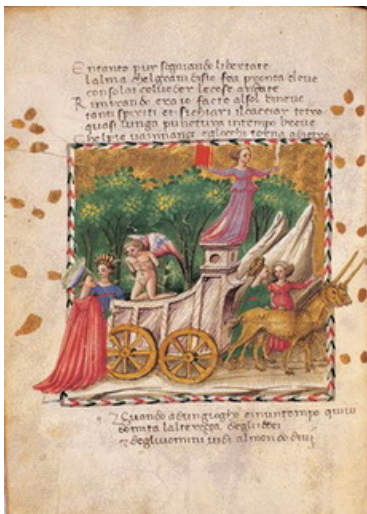 Entanto pur sognando libertate
lalma chelgran disio fea pronta eleve
consolai colveder lecose andate
Rimirando eraio facto alsol dineve
tanti spirti et sichiari incarcer tetro
quasi lunga pictura intempo breve
Chelpie vainnanzi eglocchi torna adietro
Quando adungiogho einuntempo quivi
domita lalterezza deglidei
e degliuomini vidi almondo divi